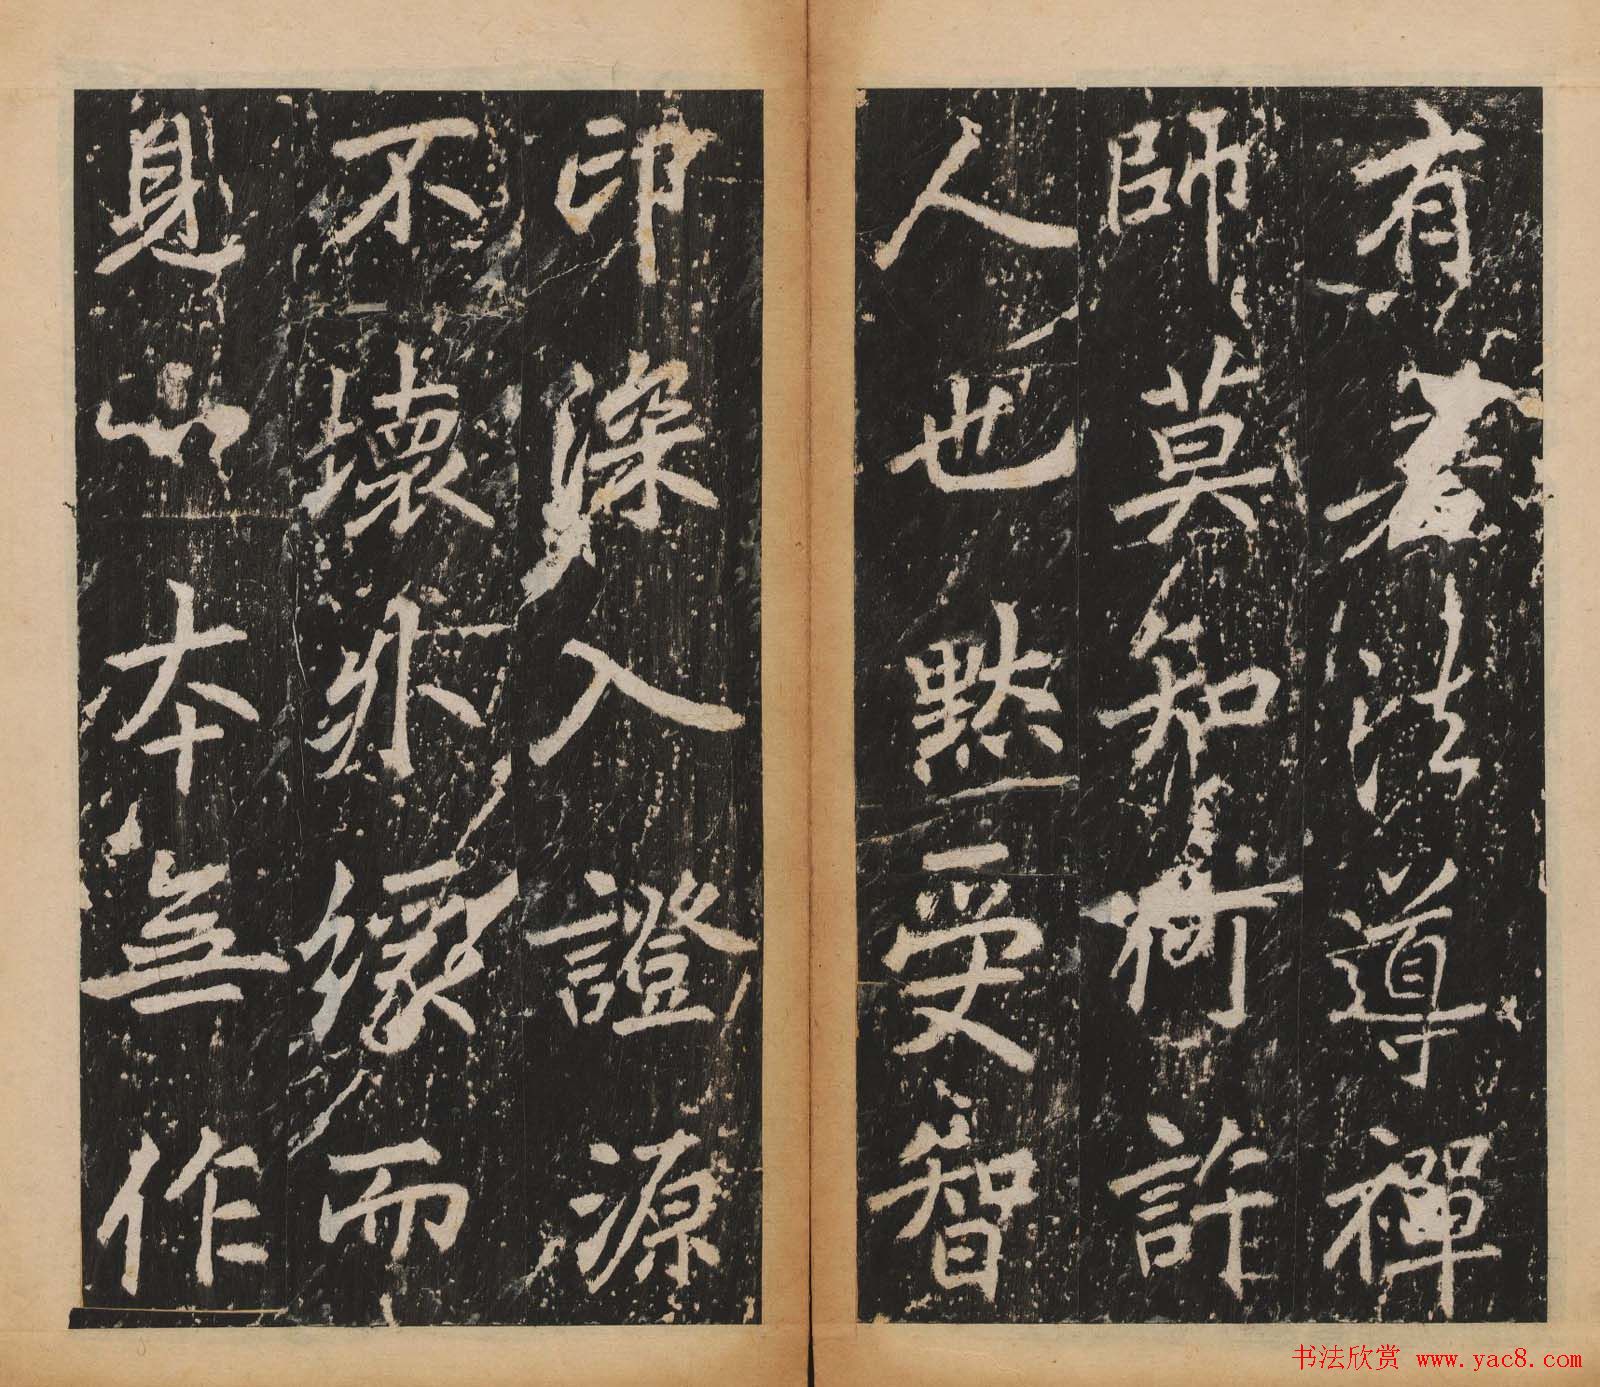 有若法導禪
師莫知何許
人也默受智
印深入證源
不壞外緣而
見心本無作
书法欣赏 www.yac8.com